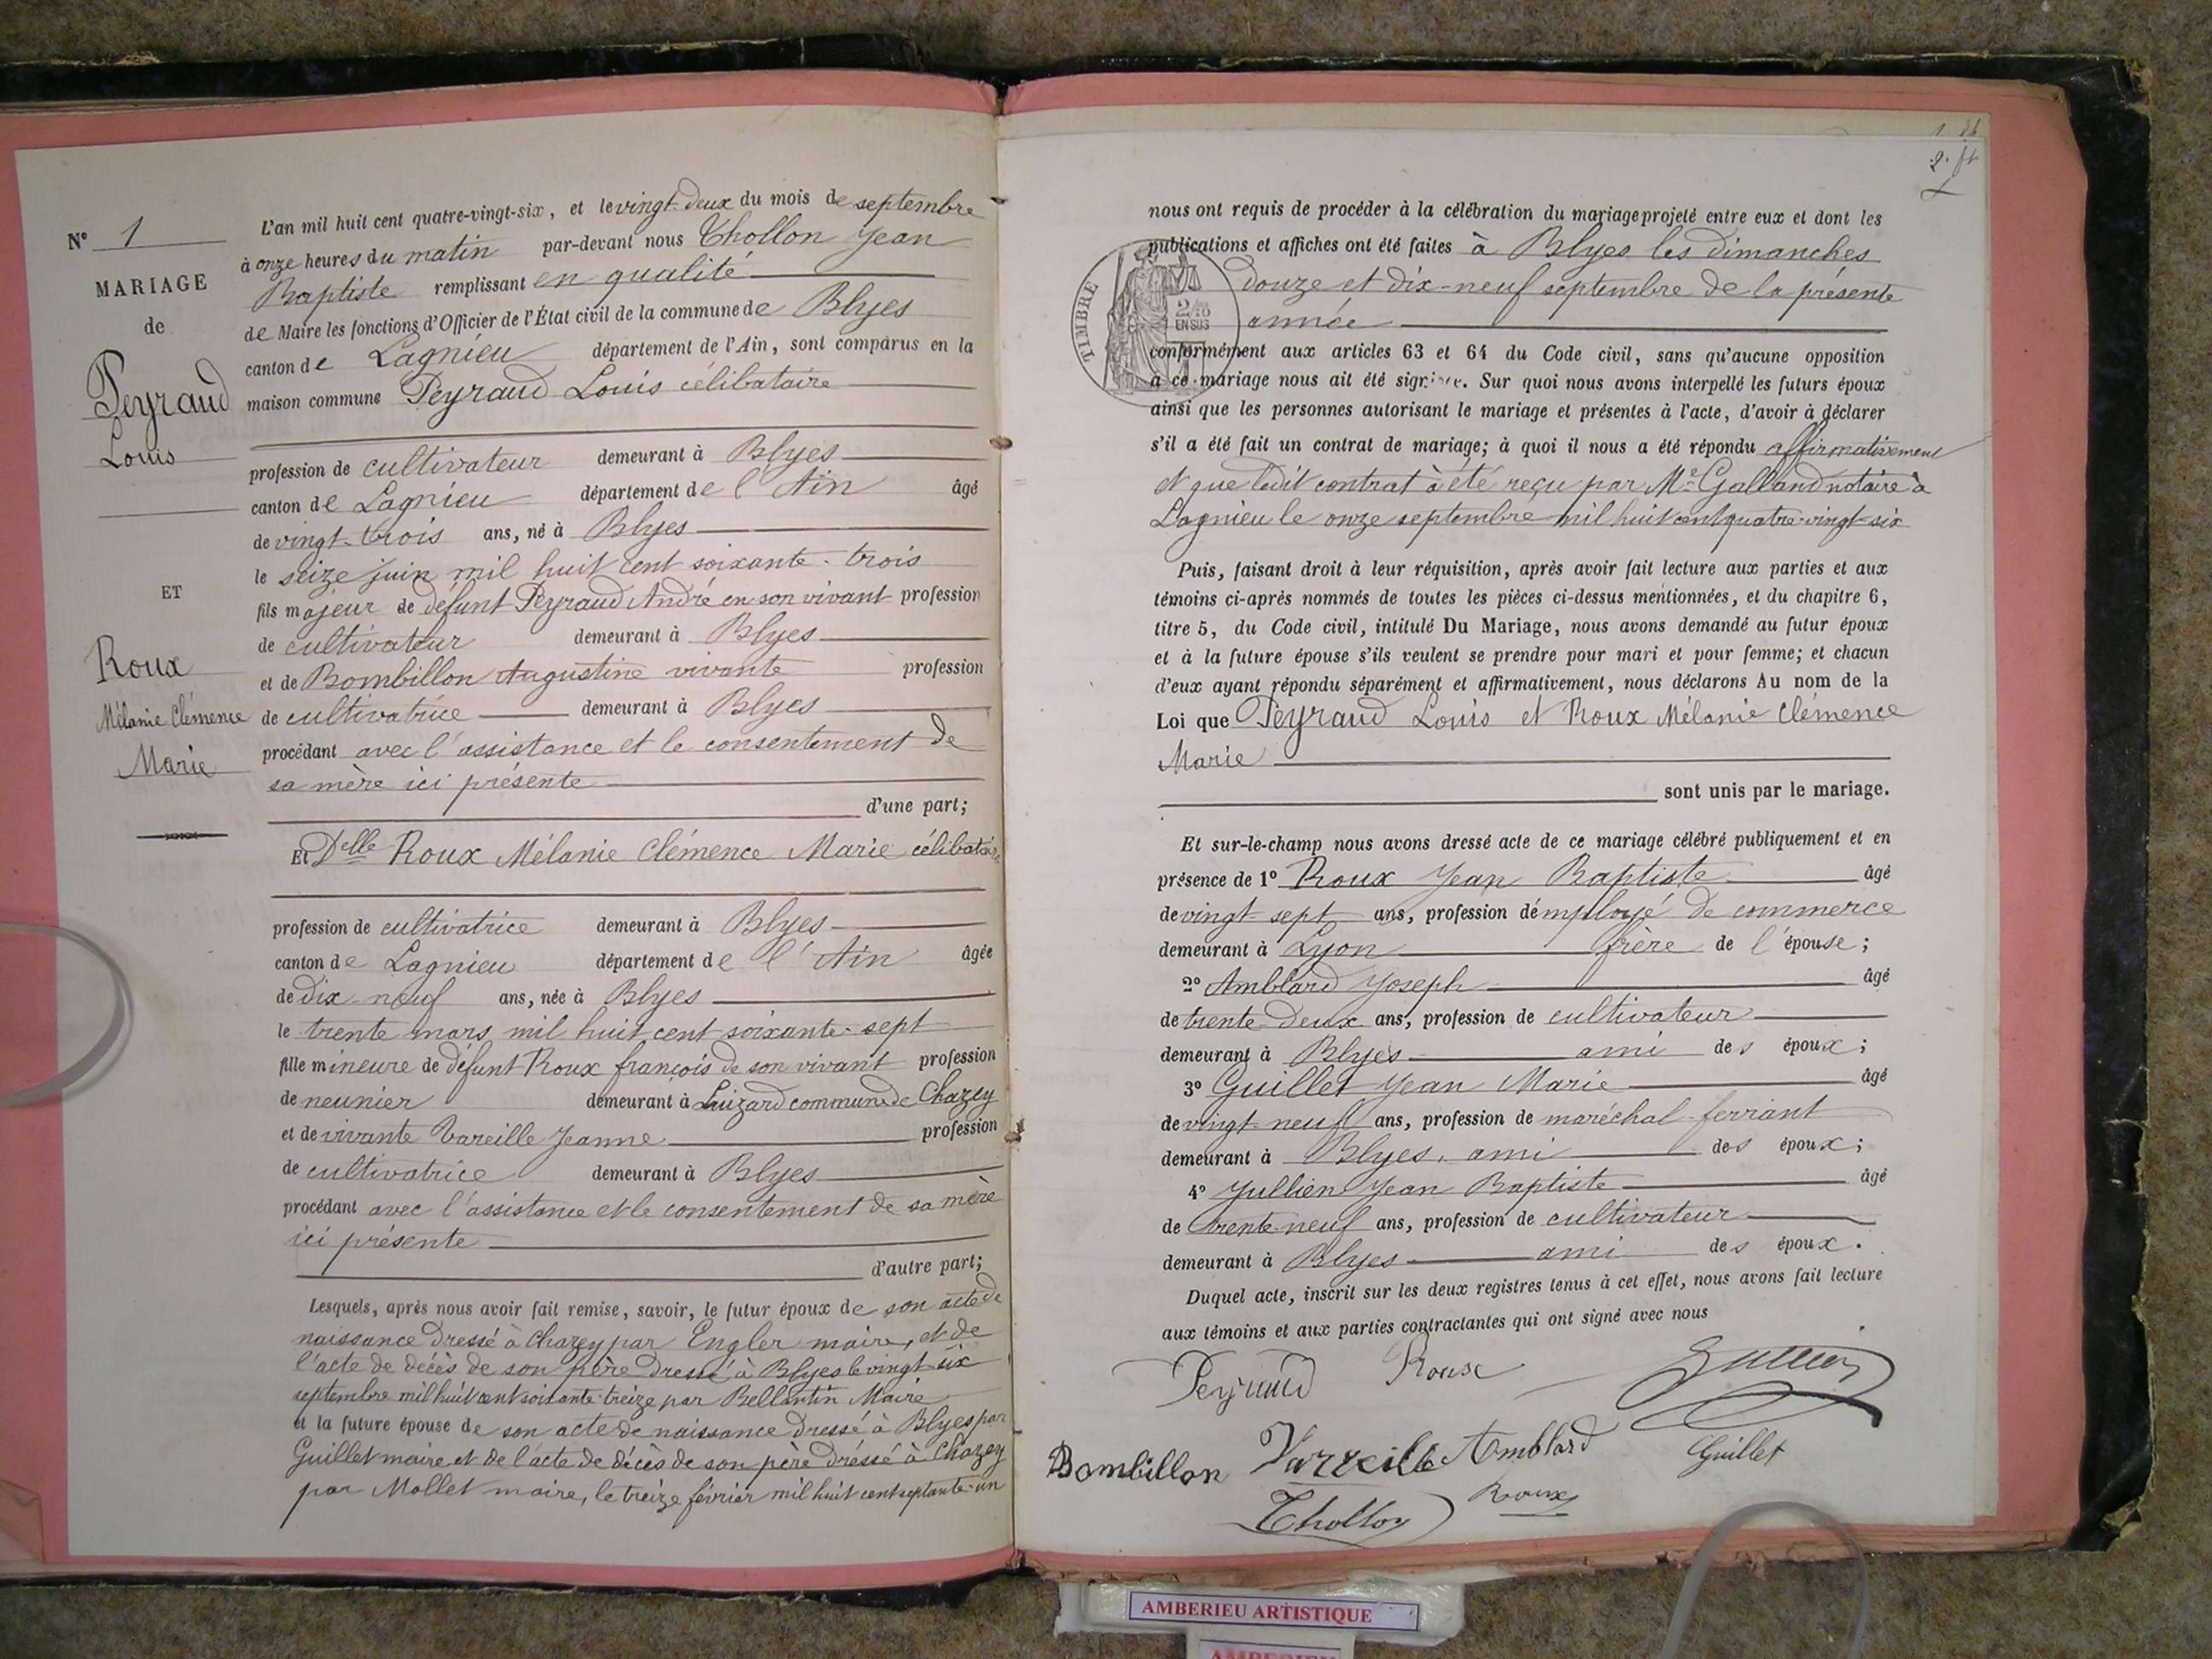 N° 1
MARIAGE
de
Peyraud
Louis
ET
Roux
Mélanie Clémence
Marie
L'an mil huit cent quatre-vingt-six, et le vingt-deux du mois de septembre
à onze heures du matin par-devant nous Thollon Jean
Baptiste remplissant en qualité
de Maire les fonctions d'Officier de l'État civil de la commune de Blyes
canton de Lagnieu département de l'Ain, sont comparus en la
maison commune Peyraud Louis célibataire
profession de cultivateur demeurant à Blyes
canton de Lagnieu département de l'Ain âgé
de vingt-trois ans, né à Blyes
le seize juin mil huit cent soixante-trois
fils majeur de défunt Peyraud André en son vivant profession
de cultivateur demeurant à Blyes
et de Bombillon Augustine vivante profession
de cultivatrice demeurant à Blyes
procédant avec l'assistance et le consentement de
sa mère ici présente
d'une part;
Et Delle Roux Mélanie Clémence Marie célibataire
profession de cultivatrice demeurant à Blyes
canton de Lagnieu département de l'Ain âgée
de dix-neuf ans, née à Blyes
le trente mars mil huit cent soixante-sept
fille mineure de défunt Roux françois de son vivant profession
de neunier demeurant à Luizard commune de Chazey
et de vivante Vareille Jeanne profession
de cultivatrice demeurant à Blyes
procédant avec l'assistance et le consentement de sa mère
ici présente
d'autre part;
Lesquels, après nous avoir fait remise, savoir, le futur époux de son acte de
naissance dressé à Chazey par Engler maire, et de
l'acte de décès de son père dressé à Blyes le vingt-six
septembre mil huit cent soixante-treize par Bellantin Maire
et la future épouse de son acte de naissance dressé à Blyes par
Guillet maire et de l'acte de décès de son père dréssé à Chazey
par Mollet maire, le treize février mil huit cent septante-un
1 86
2.
nous ont requis de procéder à la célébration du mariage projeté entre eux et dont les
publications et affiches ont été faites à Blyes les dimanches
douze et dix-neuf septembre de la présente
année
TIMBRE
2/10
EN SUS
conformément aux articles 63 et 64 du Code civil, sans qu'aucune opposition
à ce mariage nous ait été signifiée. Sur quoi nous avons interpellé les futurs époux
ainsi que les personnes autorisant le mariage et présentes à l'acte, d'avoir à déclarer
s'il a été fait un contrat de mariage; à quoi il nous a été répondu affirmativement
et que ledit contrat à été reçu par Me Galland notaire à
Lagnieu le onze septembre mil huit cent quatre-vingt-six
Puis, faisant droit à leur réquisition, après avoir fait lecture aux parties et aux
témoins ci-après nommés de toutes les pièces ci-dessus mentionnées, et du chapitre 6,
titre 5, du Code civil, intitulé Du Mariage, nous avons demandé au futur époux
et à la future épouse s'ils veulent se prendre pour mari et pour femme; et chacun
d'eux ayant répondu séparément et affirmativement, nous déclarons Au nom de la
Loi que Peyraud Louis et Roux Mélanie Clémence
Marie
sont unis par le mariage.
Et sur-le-champ nous avons dressé acte de ce mariage célébré publiquement et en
présence de 1° Roux Jean Baptiste âgé
de vingt-sept ans, profession d'employé de commerce
demeurant à Lyon frère de l'épouse;
2° Amblard Joseph âgé
de trente-deux ans, profession de cultivateur
demeurant à Blyes ami des époux;
3° Guillet Jean Marie âgé
de vingt-neuf ans, profession de maréchal-ferrant
demeurant à Blyes, ami des époux;
4° Jullien Jean Baptiste âgé
de trente-neuf ans, profession de cultivateur
demeurant à Blyes ami des époux.
Duquel acte, inscrit sur les deux registres tenus à cet effet, nous avons fait lecture
aux témoins et aux parties contractantes qui ont signé avec nous
Peyraud Roux Jullien
Bombillon Varreille Amblard Guillet
Thollon Roux
AMBERIEU ARTISTIQUE
AMBERIEU